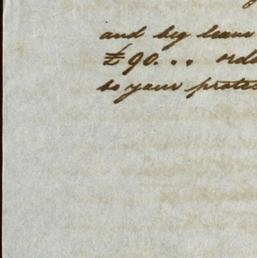 and beg leave
£90... orde
to your protec